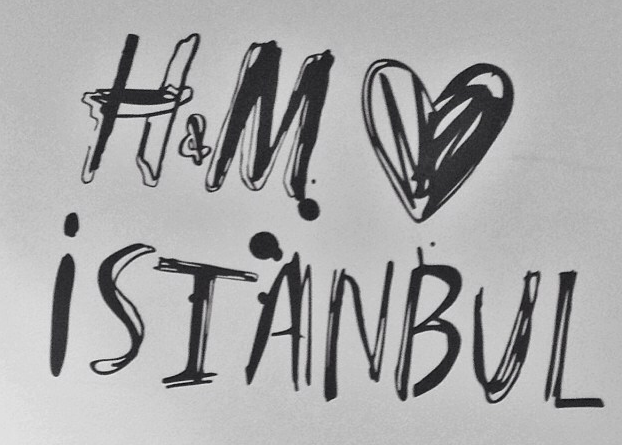 H&M ♥
İSTANBUL